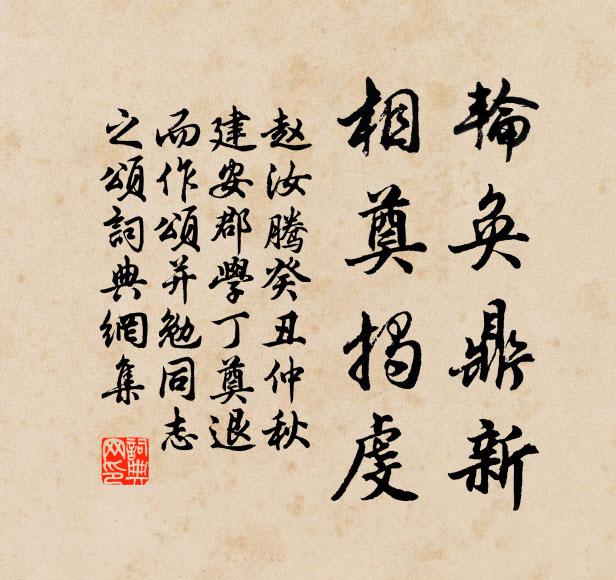 輪奐鼎新
相奠揭虔
赵汝騰癸丑仲秋
建安郡學丁奠退
而作頌并勉同志
之頌詞典網集
詞典網印